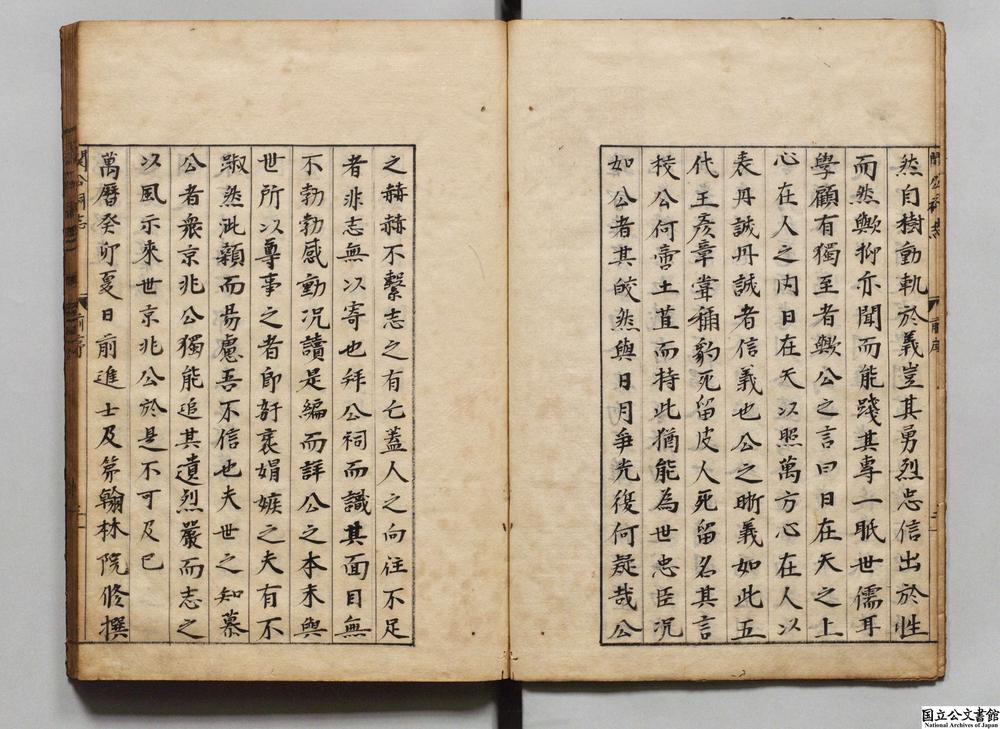 然自樹動軌於義豈其勇烈忠信出於性
而然歟抑亦聞而能踐其專一眂世儒耳
學顧有獨至者歟公之言曰日在天之上
心在人之内日在天以照萬方心在人以
表丹誠丹誠者信義也公之晣義如此五
代王彥章甞稱豹死留皮人死留名其言
椄公何啻土苴而持此猶能為世忠臣况
如公者其皎然與日月爭光復何疑哉公
之赫赫不繫志之有亡蓋人之向往不足
者非志無以寄也拜公祠而識其面目無
不勃勃感動况讀是編而詳公之本末與
世所以尊事之者即奸衺娟嫉之夫有不
踧然泚顙而易慮吾不信也夫世之知慕
公者衆京兆公獨能追其遺烈嚴而志之
以風示來世京兆公於是不可及已
萬曆癸卯夏日前進士及第翰林院修撰
前序
国立公文書館
National Archives of Japan